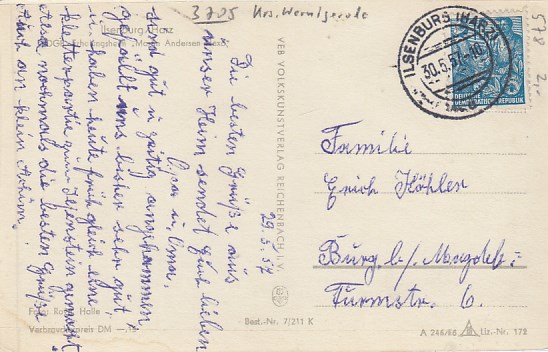 3705 Krs. Wernigerode
578
Ilsenburg / Harz
FDGB-Erholungsheim „Martin Andersen Nexö"
29.5.57
Die besten Grüße aus
unser Heim sendet Euch lieben
Opa u. Oma.
sind gut u. gesättigt angekommen
gefällt uns bisher sehr gut
u. haben heute früh gleich eine
Kletterpartie zum Ilsenstein gemacht
also nochmals die besten Grüße
auch an klein Achim.
Foto: Roth, Halle
Verbraucherpreis DM –.15
VEB VOLKSKUNSTVERLAG REICHENBACH I. V.
Best.-Nr. 7/211 K
ILSENBURG (HARZ)
30.5.57
DEUTSCHE
DEMOKRATISCHE REPUBLIK
Familie
Erich Köhler
Burg b/ Magdeb:
Turmstr. 6.
A 246/56 Liz.-Nr. 172